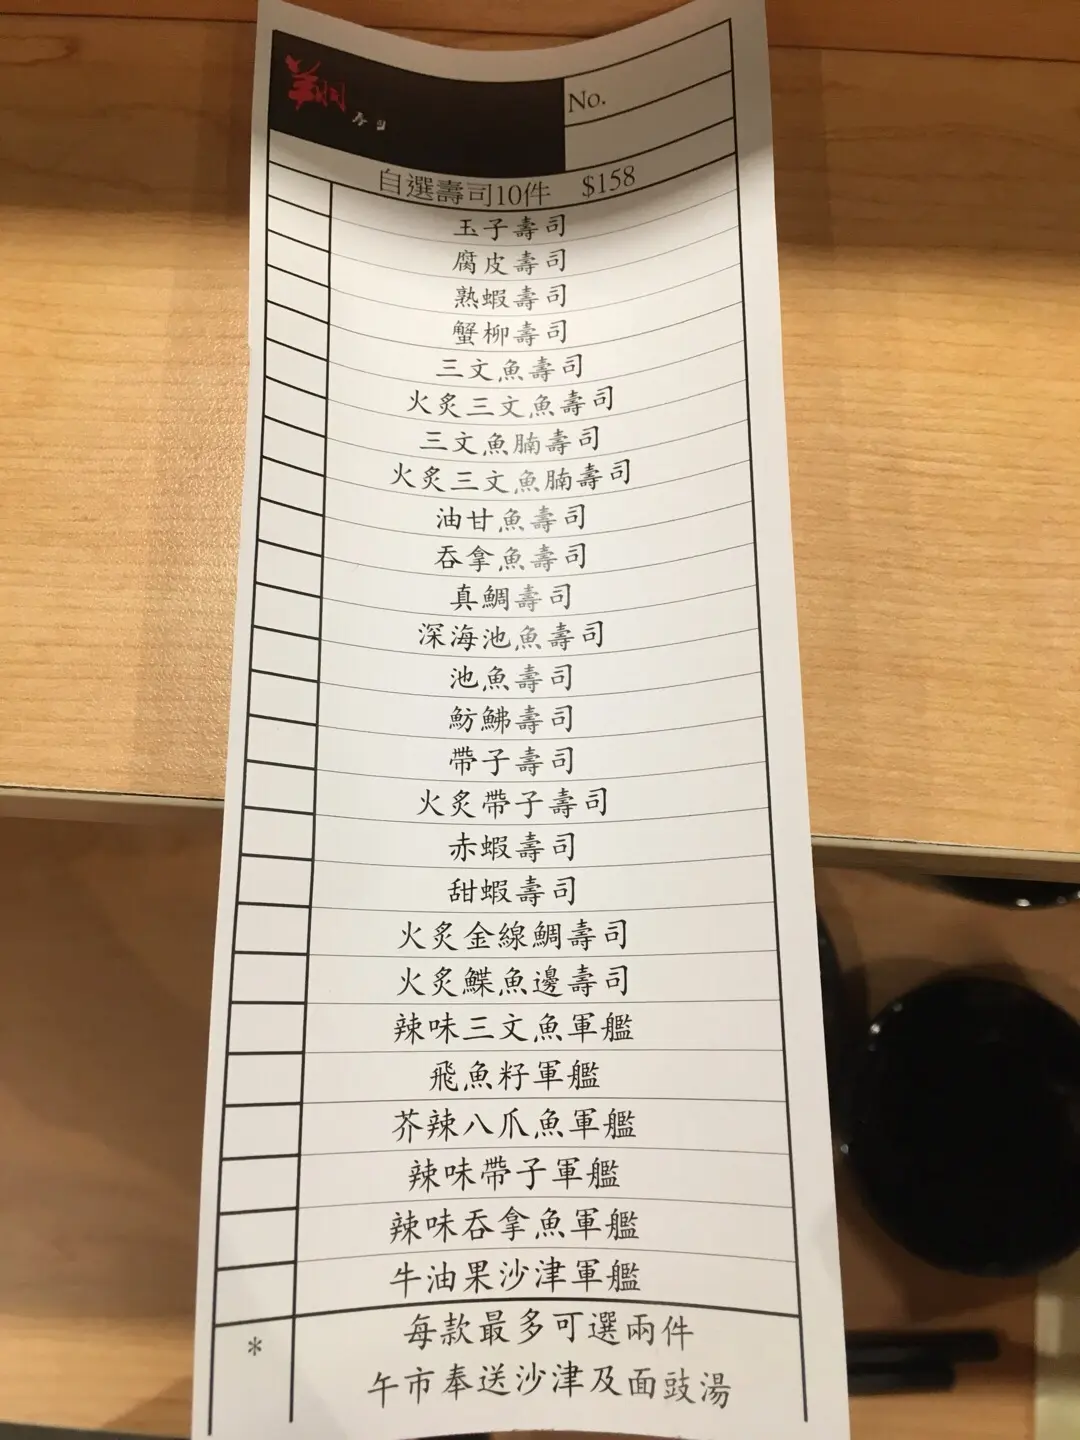 No.
自選壽司10件 $158
玉子壽司
腐皮壽司
熟蝦壽司
蟹柳壽司
三文魚壽司
火炙三文魚壽司
三文魚腩壽司
火炙三文魚腩壽司
油甘魚壽司
吞拿魚壽司
真鯛壽司
深海池魚壽司
池魚壽司
魴鮄壽司
帶子壽司
火炙帶子壽司
赤蝦壽司
甜蝦壽司
火炙金線鯛壽司
火炙鰈魚邊壽司
辣味三文魚軍艦
飛魚籽軍艦
芥辣八爪魚軍艦
辣味帶子軍艦
辣味吞拿魚軍艦
牛油果沙津軍艦
* 每款最多可選兩件
午市奉送沙津及面豉湯